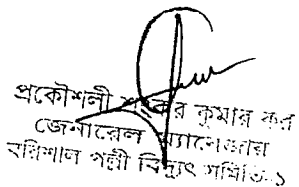 প্রকৌশলী কুমার
জেনারেল ম্যানেজার
বরিশাল পল্লী বিদ্যুৎ সমিতি-১